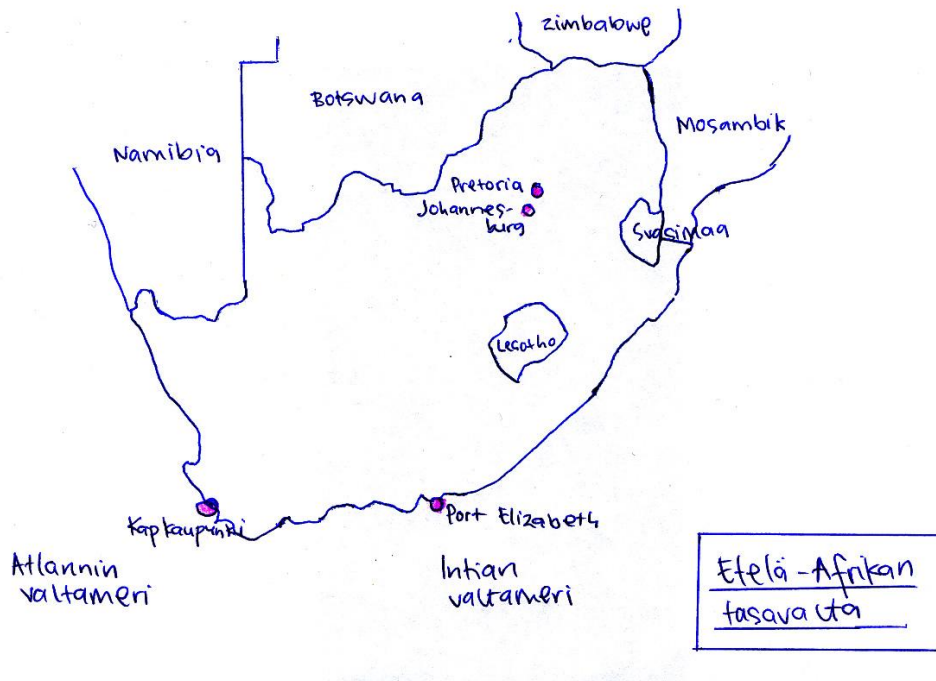 Zimbabwe
Botswana
Mosambik
Namibia
Pretoria
Johannes-
burg
Svasimaa
Lesotho
Kapkaupunki
Port Elizabeth
Atlannin
valtameri
Intian
valtameri
Etelä-Afrikan
tasavalta